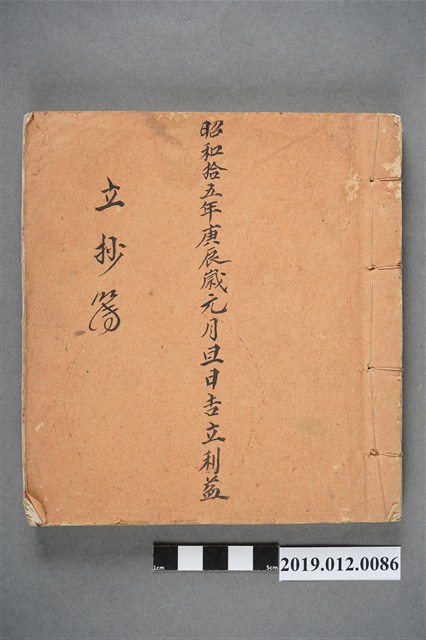 昭和拾五年庚辰歲元月旦日吉立利益
立抄簿
1cm
5cm
2019.012.0086